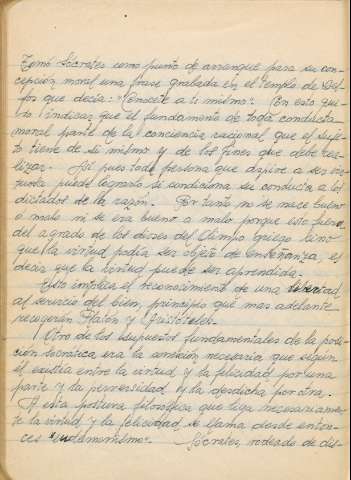 Tomó Sócrates como punto de arranque para su con-
cepción moral una frase grabada en el templo de Del-
fos que decía: "Conócete a ti mismo". En esto que-
ría indicar que el fundamento de toda conducta
moral parte de la conciencia racional que el suje-
to tiene de sí mismo y de los fines que debe rea-
lizar. Así pues toda persona que aspire a ser vir-
tuosa puede lograrlo si condiciona su conducta a los
dictados de la razón. Por tanto no se nace bueno
o malo ni se era bueno o malo porque esto fuera
del agrado de los dioses del Olimpo griego sino
que la virtud podía ser objeto de enseñanza, es
decir que la virtud puede ser aprendida.
Esto implica el reconocimiento de una libertad
al servicio del bien, principios que mas adelante
recogerán Platón y Aristóteles.
Otro de los supuestos fundamentales de la posi-
ción socrática era la conexión necesaria que según
el existía entre la virtud y la felicidad por una
parte y la perversidad y la desdicha por otra.
A esta postura filosófica que liga necesariamen-
te la virtud y la felicidad, se llama desde enton-
ces "eudemonismo". Sócrates, rodeado de dis-